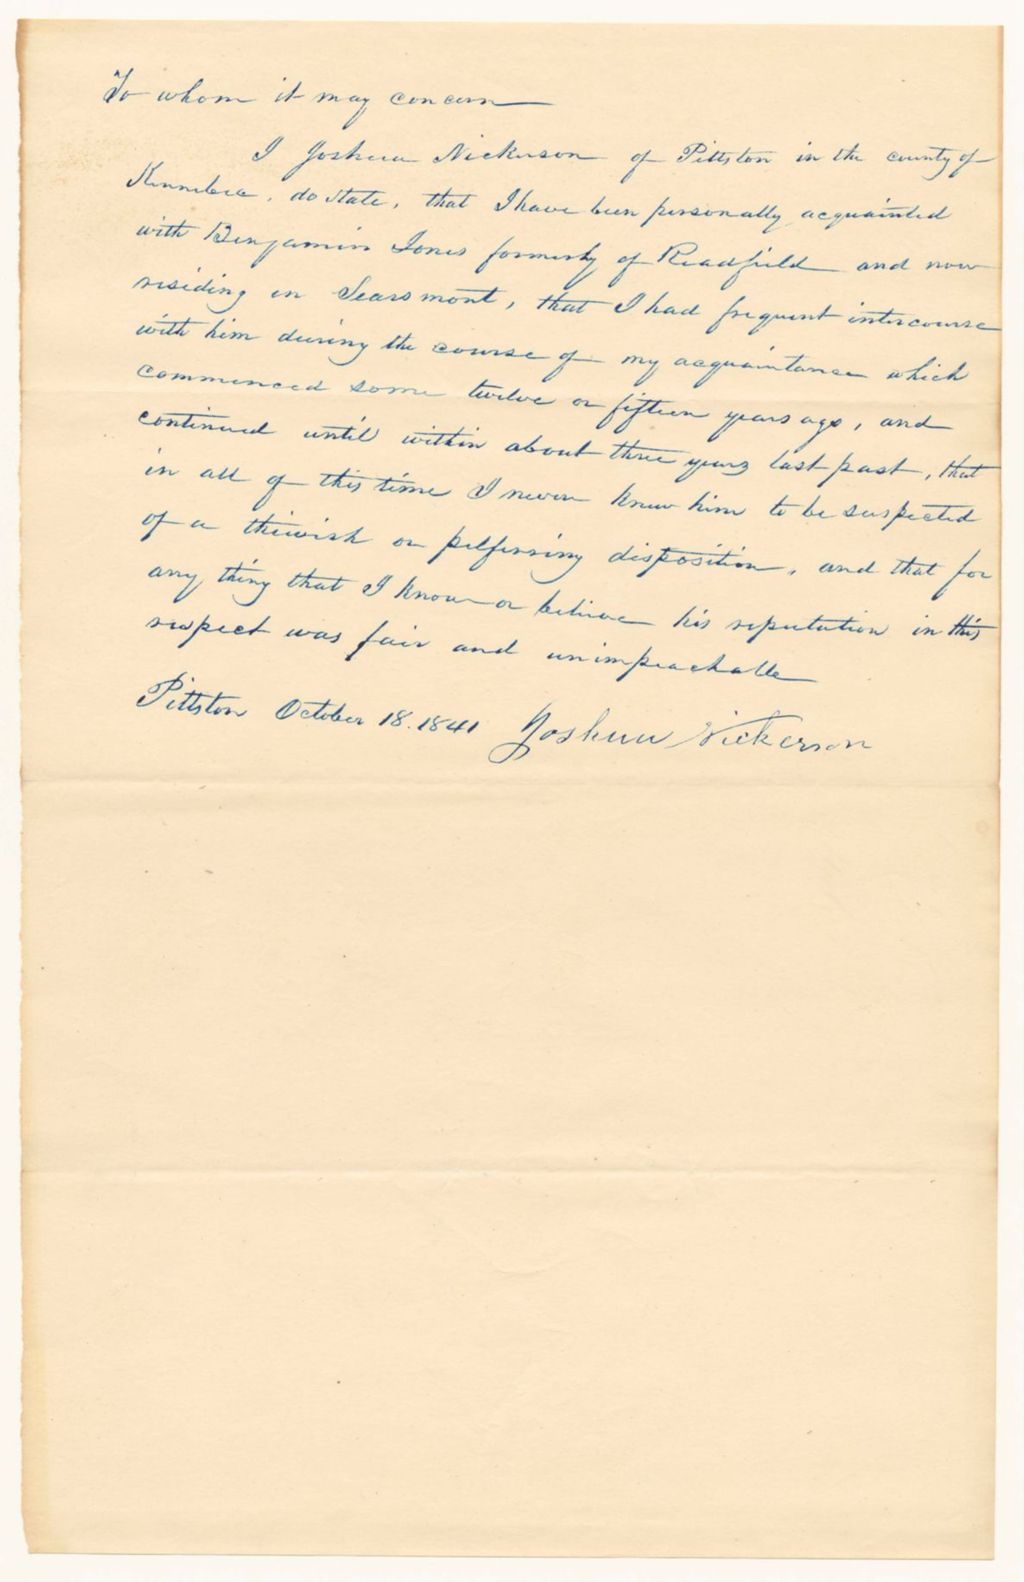 To whom it may concern
I Joshua Nickerson of Pittston in the county of
Kennebec, do state, that I have been personally acquainted
with Benjamin Jones formerly of Readfield and now
residing in Searsmont, that I had frequent intercourse
with him during the course of my acquaintance which
commenced some twelve or fifteen years ago, and
continued until within about three years last past, that
in all of this time I never knew him to be suspected
of a theivish or pilferring disposition, and that for
any thing that I know or believe his reputation in this
respect was fair and unimpeachable
Pittston October 18. 1841 Joshua Nickerson